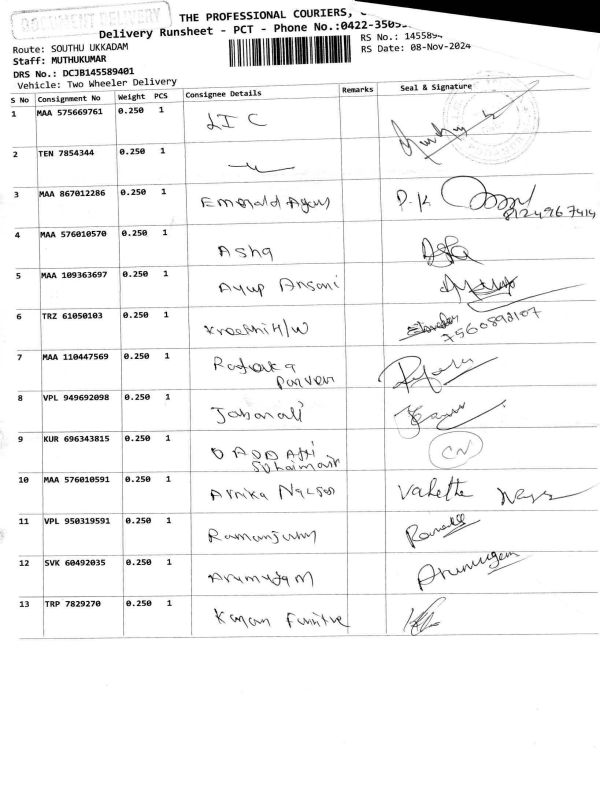 DOCUMENT DELIVERY
THE PROFESSIONAL COURIERS,
Delivery Runsheet - PCT - Phone No.:0422-350
Route: SOUTHU UKKADAM
RS No.: 145589
Staff: MUTHUKUMAR
RS Date: 08-Nov-2024
DRS No.: DCJB145589401
Vehicle: Two Wheeler Delivery
S No Consignment No Weight PCS Consignee Details Remarks Seal & Signature
1 MAA 575669761 0.250 1 LIC
2 TEN 7854344 0.250 1
3 MAA 867012286 0.250 1 Emerald P.K 8124967414
4 MAA 576010570 0.250 1 Asha
5 MAA 109363697 0.250 1 Ayup Ansari
6 TRZ 61050103 0.250 1 H/W 7560892107
7 MAA 110447569 0.250 1
Parveen
8 VPL 949692098 0.250 1 Jabarali
9 KUR 696343815 0.250 1 CN
10 MAA 576010591 0.250 1
11 VPL 950319591 0.250 1
12 SVK 60492035 0.250 1 Arumugam Arumugam
13 TRP 7829270 0.250 1